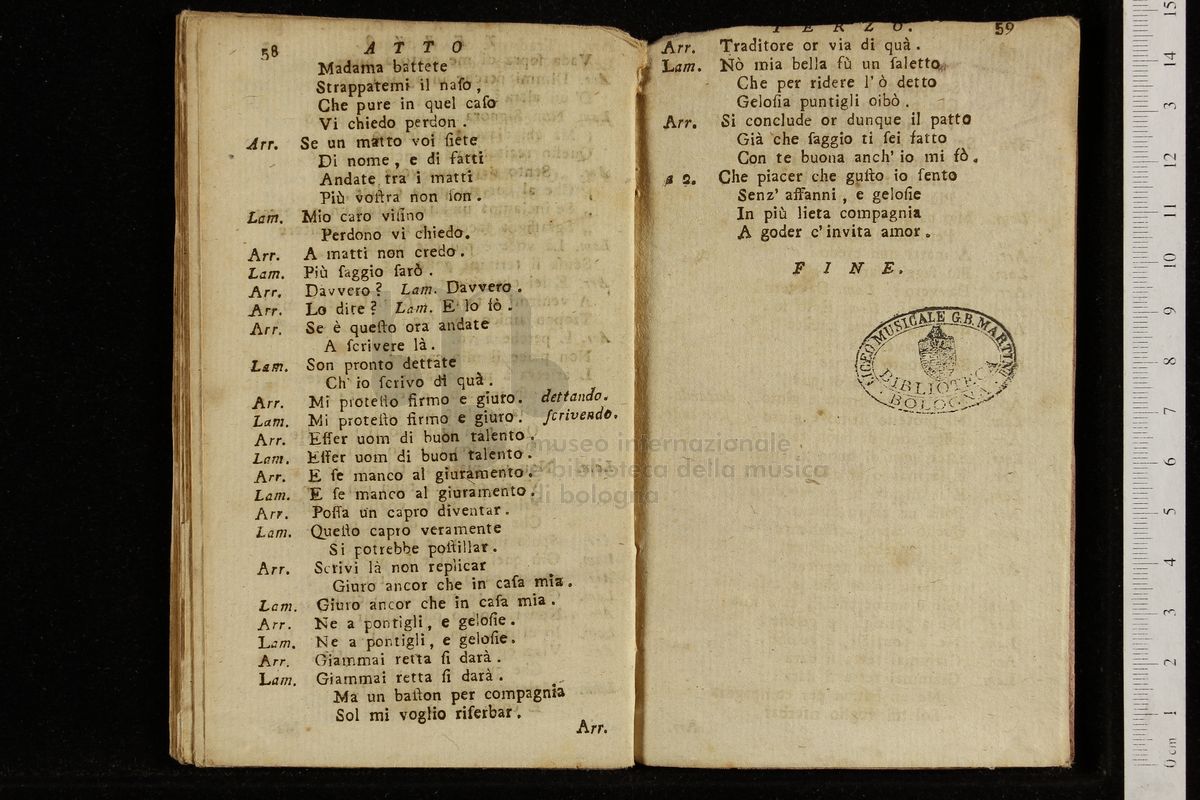 58 ATTO
Madama battete
Strappatemi il naſo ,
Che pure in quel caſo
Vi chiedo perdon .
Arr. Se un matto voi ſiete
Di nome , e di fatti
Andate tra i matti
Più voſtra non ſon .
Lam. Mio caro viſino
Perdono vi chiedo.
Arr. A matti non credo .
Lam. Più ſaggio ſarò .
Arr. Davvero ? Lam. Davvero .
Arr. Lo dite ? Lam. E lo ſò .
Arr. Se è queſto ora andate
A ſcrivere là .
Lam. Son pronto dettate
Ch' io ſcrivo di quà .
Arr. Mi proteſto firmo e giuro. dettando.
Lam. Mi proteſto firmo e giuro . ſcrivendo.
Arr. Eſſer uom di buon talento .
Lam. Eſſer uom di buon talento .
Arr. E ſe manco al giuramento .
Lam. E ſe manco al giuramento .
Arr. Poſſa un capro diventar .
Lam. Queſto capro veramente
Si potrebbe poſtillar .
Arr. Scrivi là non replicar
Giuro ancor che in caſa mia .
Lam. Giuro ancor che in caſa mia .
Arr. Ne a pontigli , e geloſie .
Lam. Ne a pontigli , e geloſie .
Arr. Giammai retta ſi darà .
Lam. Giammai retta ſi darà .
Ma un baſton per compagnia
Sol mi voglio riſerbar .
Arr.
TERZO. 59
Arr. Traditore or via di quà .
Lam. Nò mia bella fù un ſaletto
Che per ridere l' ò detto
Geloſia puntigli oibò .
Arr. Si conclude or dunque il patto
Già che ſaggio ti ſei fatto
Con te buona anch' io mi fò .
a 2. Che piacer che guſto io ſento
Senz' affanni , e geloſie
In più lieta compagnia
A goder c' invita amor .
FINE.
LICEO MUSICALE G.B. MARTINI
BIBLIOTECA
BOLOGNA
museo internazionale
e biblioteca della musica
di bologna
0 cm 1 2 3 4 5 6 7 8 9 10 11 12 13 14 15